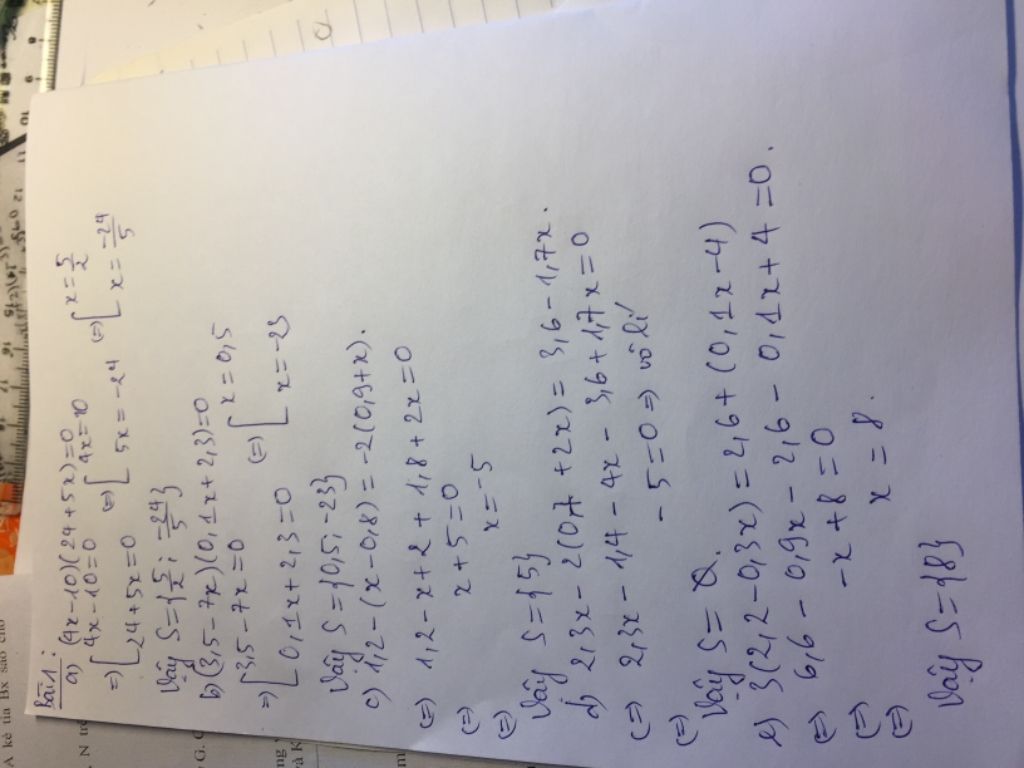 Bài 1:
a) (4x-10)(24+5x)=0
=> [ 4x-10=0 <=> [ 4x=10 <=> [ x=5/2
24+5x=0 5x=-24 x=-24/5
Vậy S={5/2; -24/5}
b) (3,5-7x)(0,1x+2,3)=0
=> [ 3,5-7x=0 <=> [ x=0,5
0,1x+2,3=0 x=-23
Vậy S={0,5; -23}
c) 1,2-(x-0,8)=-2(0,9+x).
<=> 1,2-x+2+1,8+2x=0
<=> x+5=0
<=> x=-5
Vậy S={5}
d) 2,3x-2(0,7+2x)=3,6-1,7x.
<=> 2,3x-1,4-4x-3,6+1,7x=0
<=> -5=0 => vô lí
Vậy S=Ø.
e) 3(2,2-0,3x)=2,6+(0,1x-4)
<=> 6,6-0,9x-2,6-0,1x+4=0.
<=> -x+8=0
<=> x=8.
Vậy S={8}